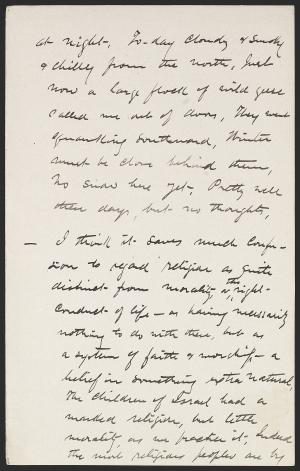 at night. To-day cloudy & smoky
& chilly from the north. Just
now a large flock of wild geese
called me out of doors, They went
southward, Winter
must be close behind them,
No snow here yet. Pretty well
these days, but no thoughts,
— I think it saves much confu-
sion to regard religion as quite
distinct from morality, or the right
conduct of life — as having necessarily
nothing to do with these, but as
a system of faith & worship — a
belief in something extra natural,
The children of Israel had a
marked religion, but little
morality, as we preach it; Indeed
the most religious peoples are by